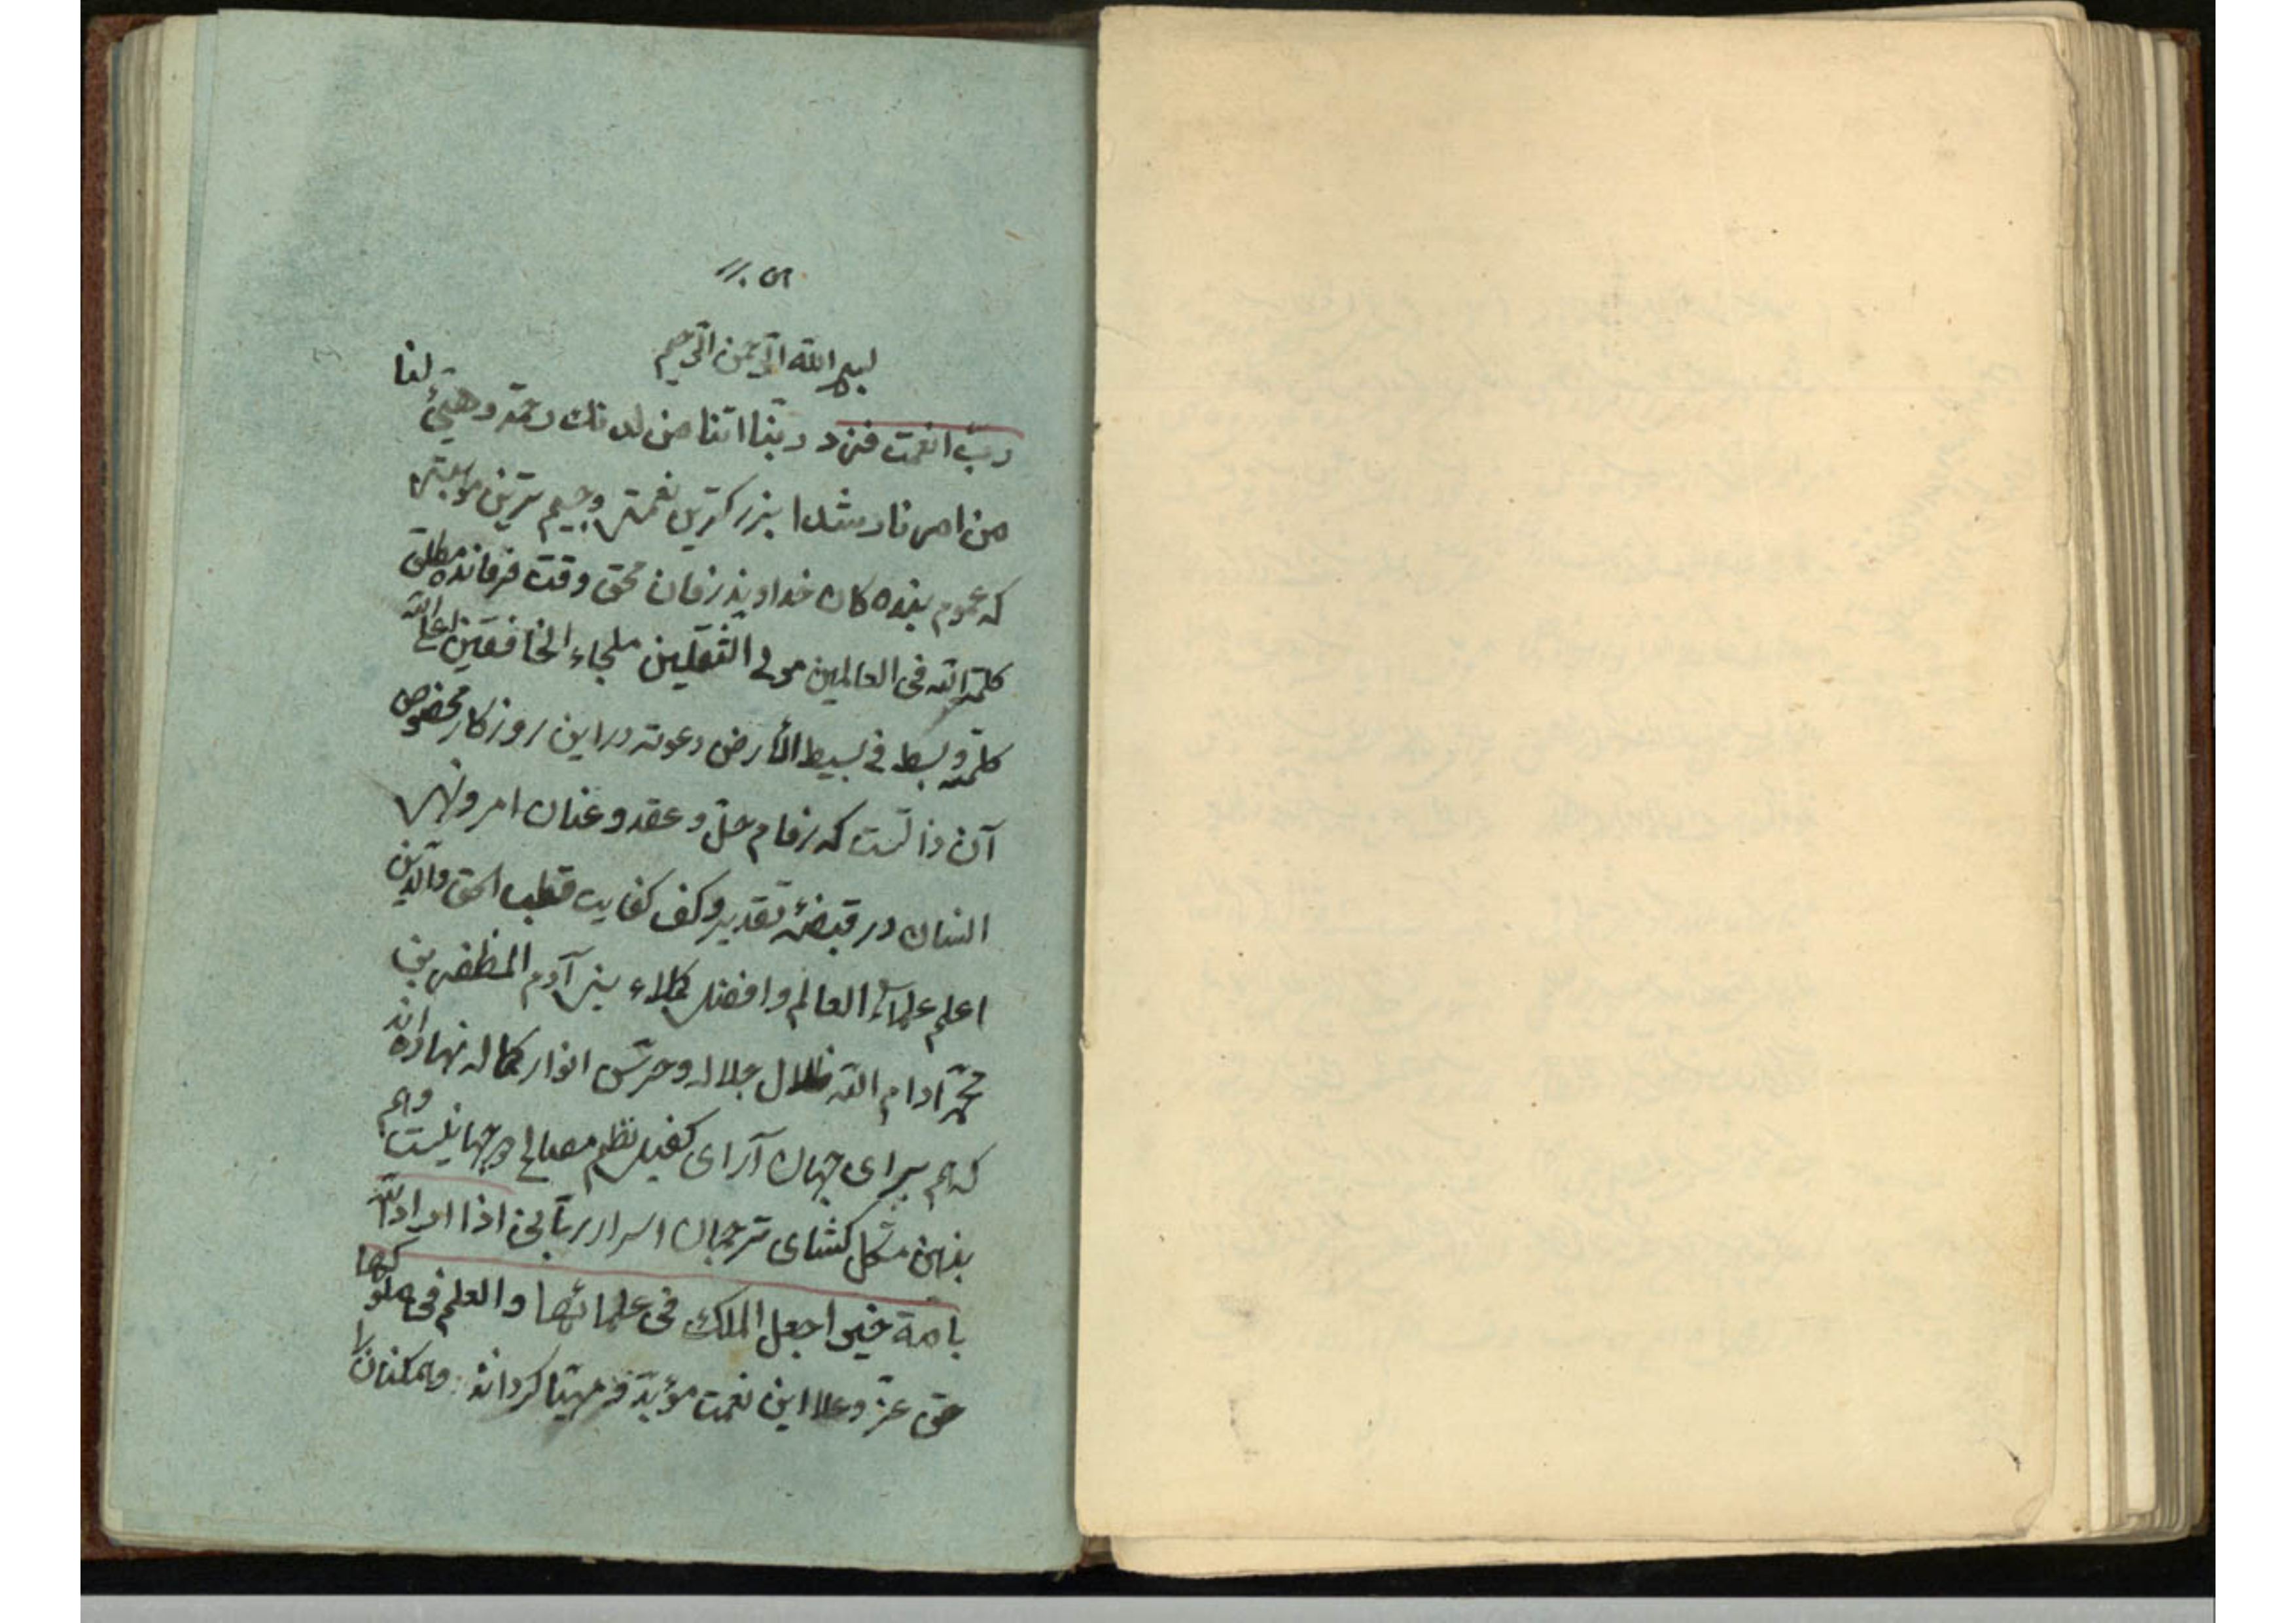 بسم الله الرّحمن الرّحیم
ربّ انعمت فزد ربّنا اتنا من لدنك رحمة وهیّئ لنا
من امرنا رشدا بزرکترین نعمتی وجسیم ترین موهبتی
که عموم بنده کان خداوند زمان محق وقت فرمانده مطلق
کلمة الله فی العالمین مولی الثقلین ملجاء الخافقین اعلی الله
کلمته وبسط فی بسیط الأرض دعوته در این روزکار مخصوص
آن ذاتست که زمام حلّ و عقد و عنان امر و نهی
انسان در قبضهٔ تقدیر وکف کفایت قطب الحق والدّین
اعلم علماء العالم وافضل کملاء بنی آدم المظفر بن
محمّد ادام الله ظلال جلاله وحرس انوار کماله نهاده اند
که هم برای جهان آرای کفیل نظم مصالح جهانیست وهم
بذهن مشکل کشای ترجمان اسرار ربّانی اذا اراد الله
بامة خیرا جعل الملك فی علمائها والعلم فی ملوکها
حق عزّ وعلا این نعمت مؤبّد مهیّا کرداند وهمکنان را